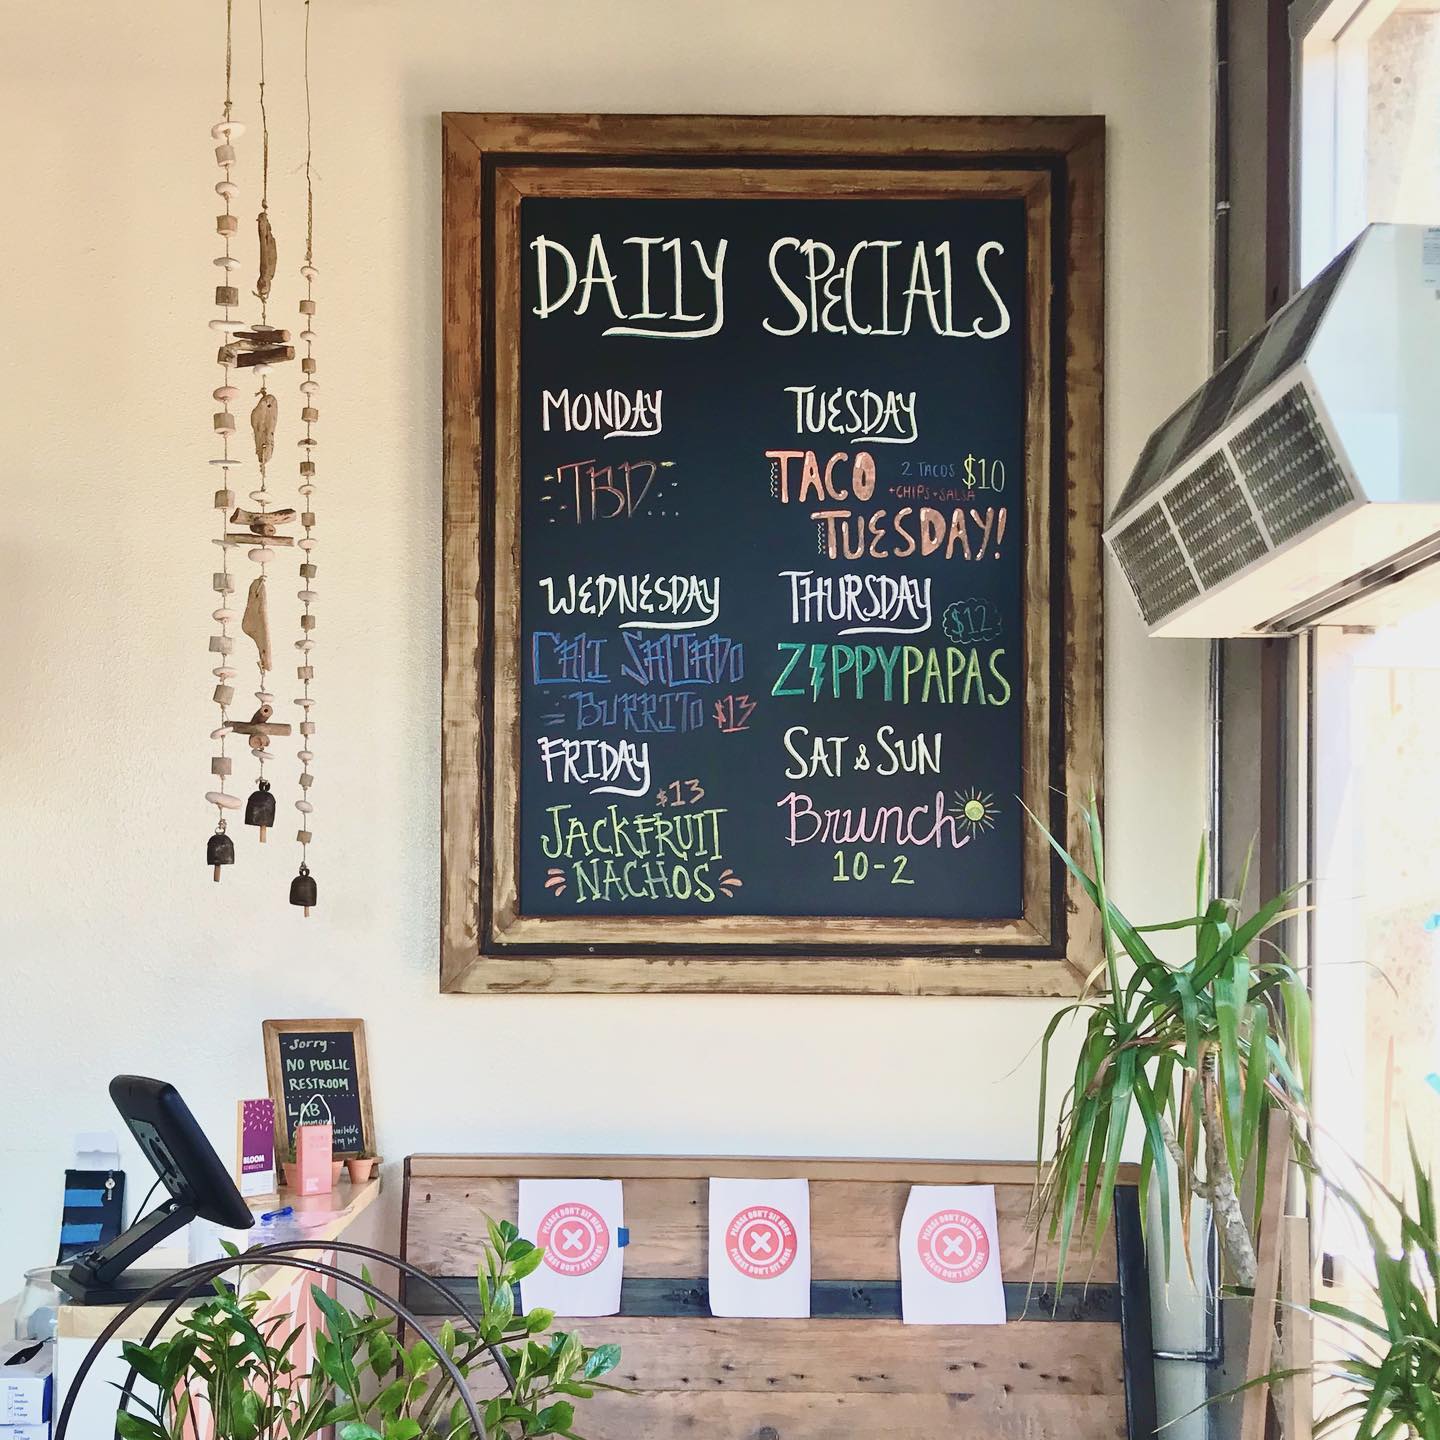 DAILY SPECIALS
MONDAY
TBD...
TUESDAY
TACO
2 TACOS $10
+CHIPS+SALSA
TUESDAY!
WEDNESDAY
CALI SALTADO
BURRITO $13
THURSDAY
$12
ZIPPYPAPAS
FRIDAY
$13
JACKFRUIT
NACHOS
SAT & SUN
Brunch
10-2
-Sorry-
NO PUBLIC
RESTROOM
LAB
BLOOM
PLEASE DON'T SIT HERE
PLEASE DON'T SIT HERE
PLEASE DON'T SIT HERE
PLEASE DON'T SIT HERE
PLEASE DON'T SIT HERE
PLEASE DON'T SIT HERE